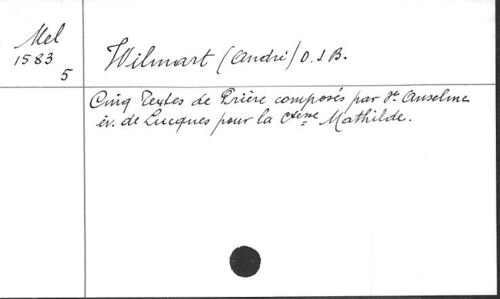 Mel
1583
5
Wilmart (André) O.S.B.
Cinq Textes de Prière composés par St Anselme
év. de Lucques pour la Ctesse Mathilde.